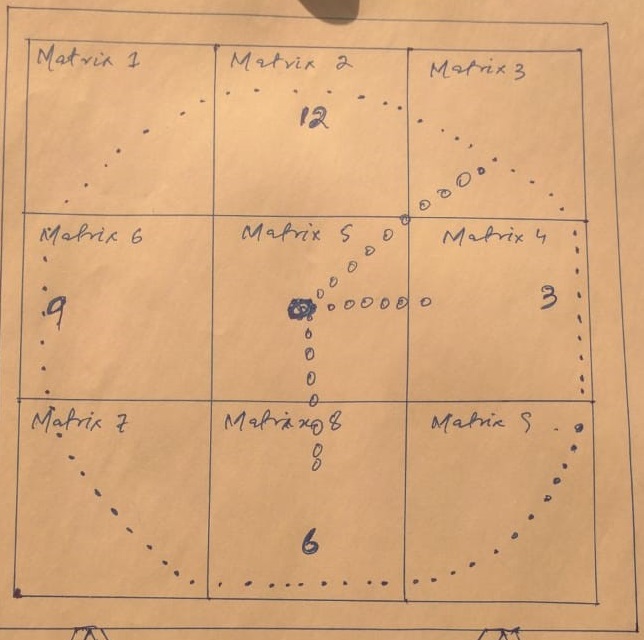 Matrix 1
Matrix 2
Matrix 3
12
Matrix 6
Matrix 5
Matrix 4
9
3
Matrix 7
Matrix 8
Matrix 9
6